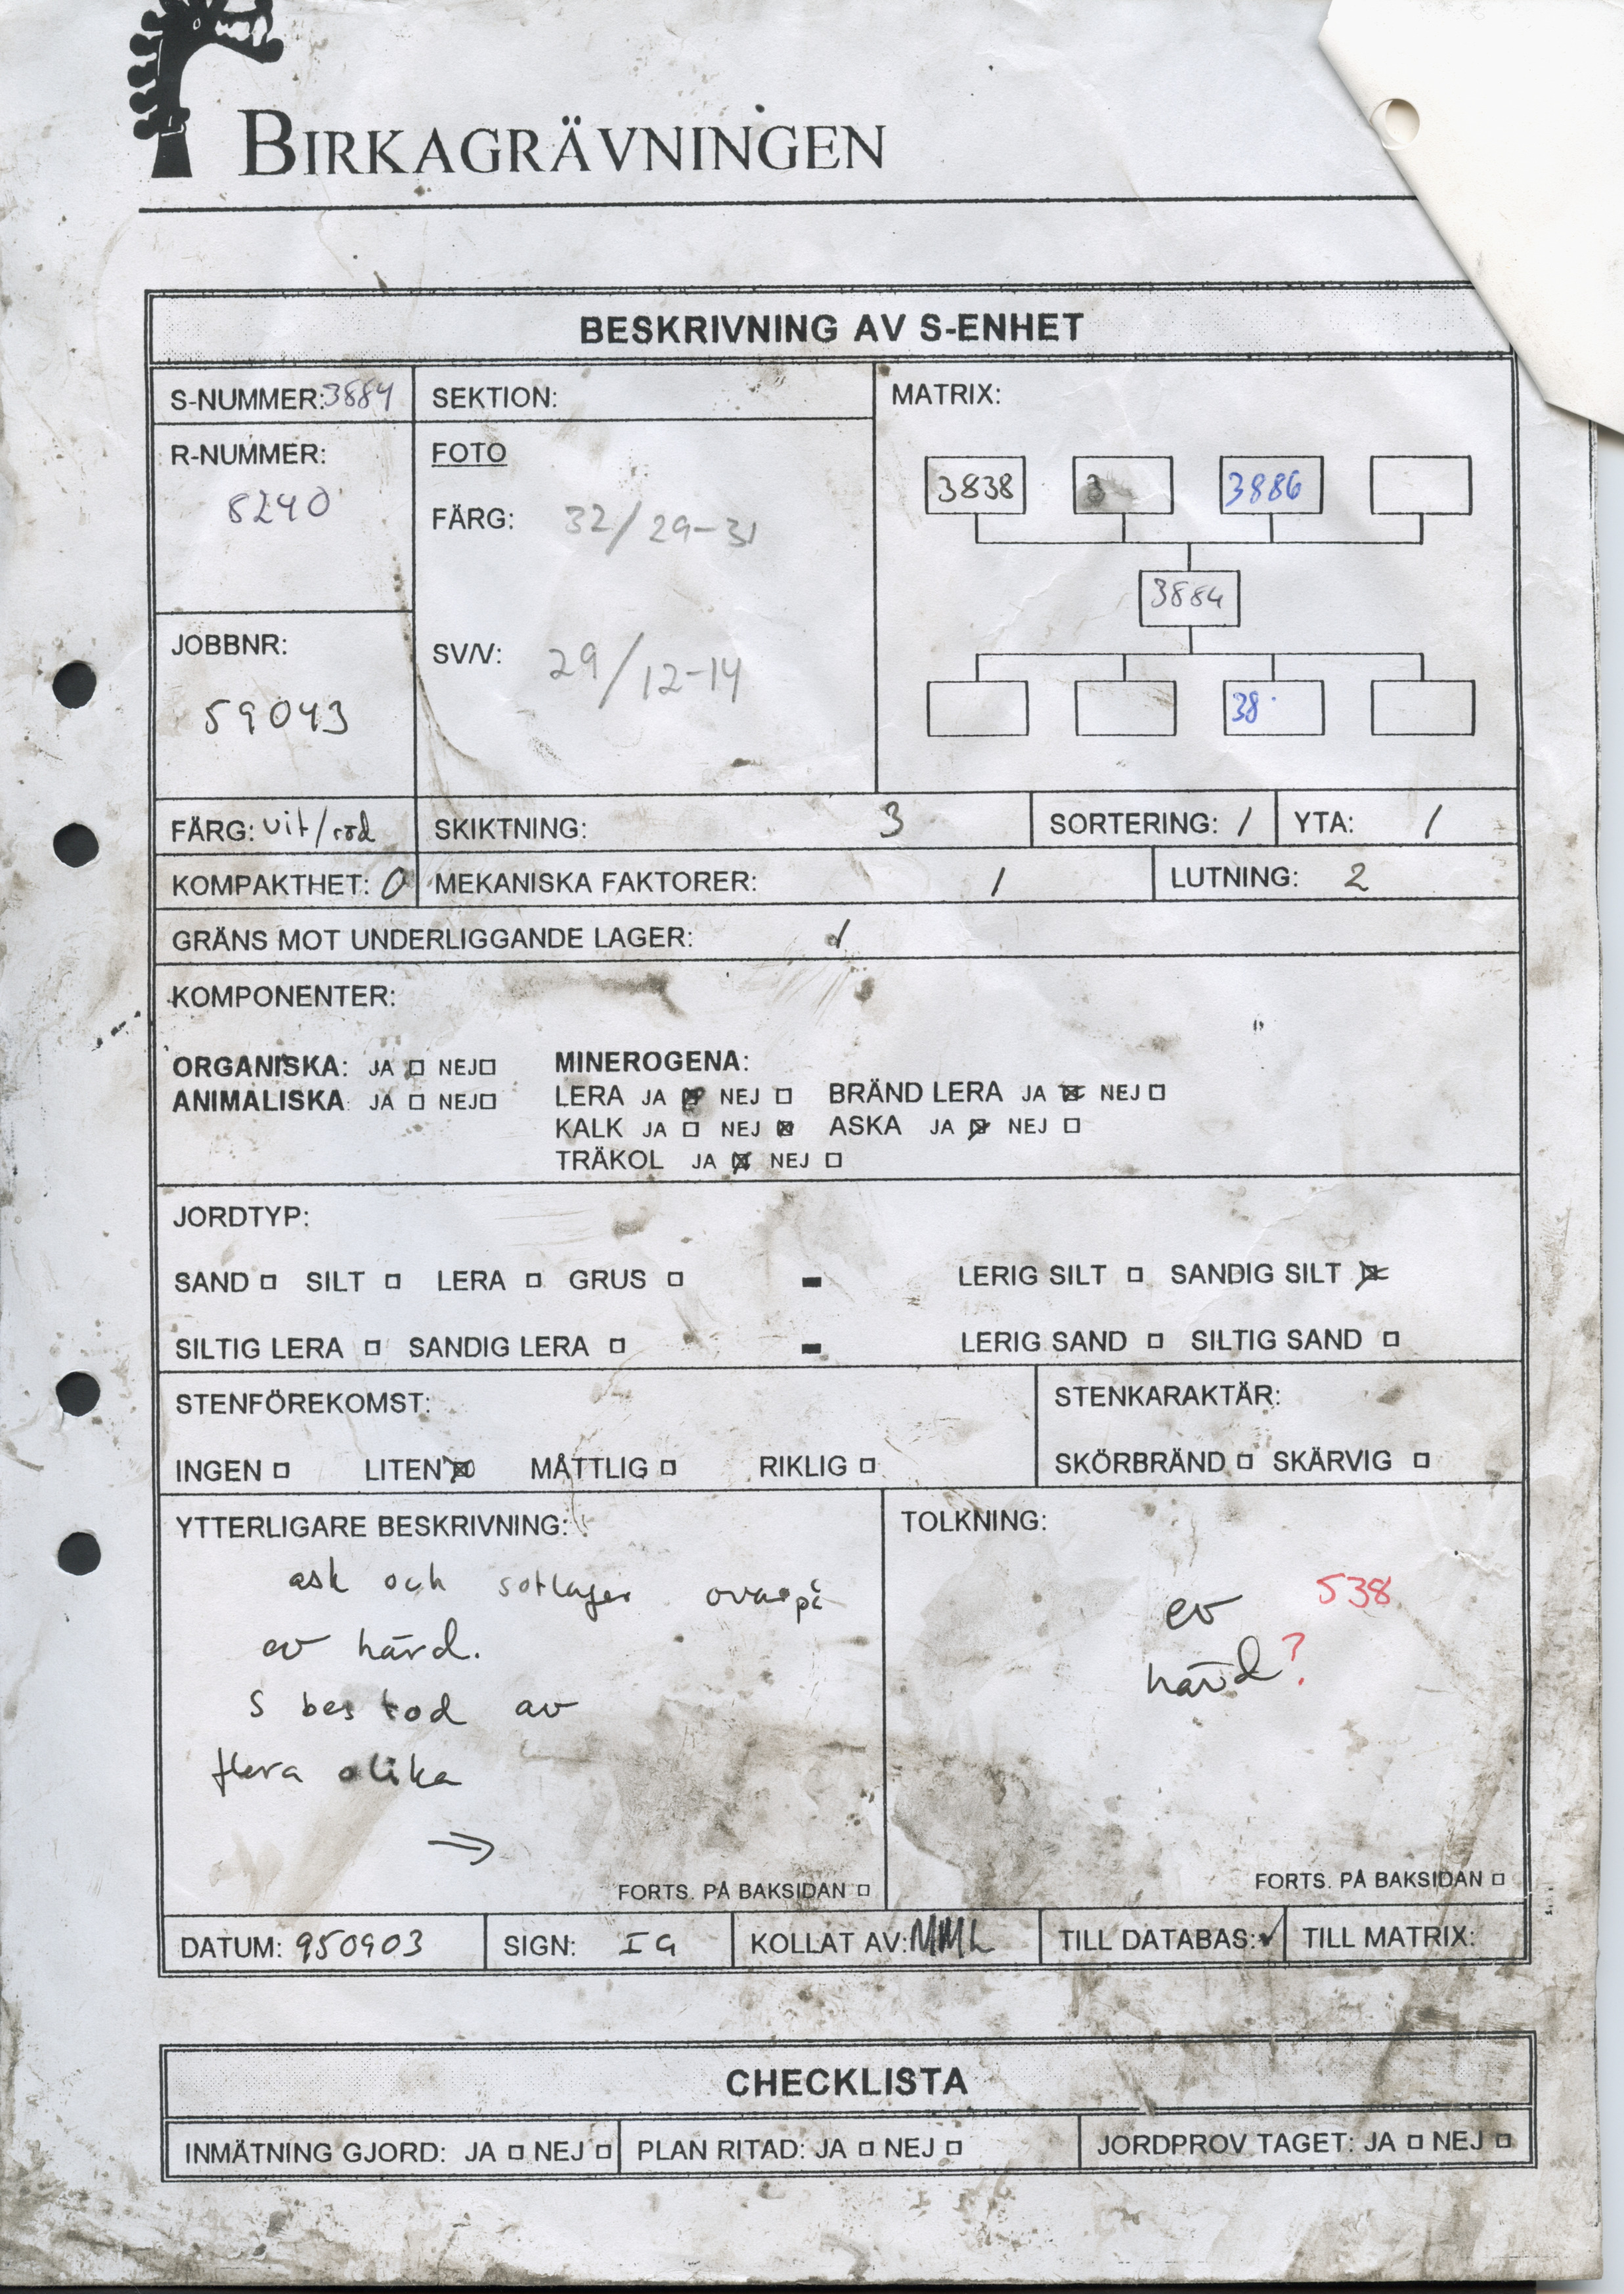 BIRKAGRÄVNINGEN
BESKRIVNING AV S-ENHET
S-NUMMER: 3884
SEKTION:
MATRIX:
R-NUMMER:
8240
FOTO
FÄRG: 32/29-31
SV/V: 29/12-14
3838 3 3886
3884
38
JOBBNR:
59043
FÄRG: vit/röd SKIKTNING: 3 SORTERING: 1 YTA: 1
KOMPAKTHET: 0 MEKANISKA FAKTORER: 1 LUTNING: 2
GRÄNS MOT UNDERLIGGANDE LAGER: 1
KOMPONENTER:
ORGANISKA: JA □ NEJ □ MINEROGENA:
ANIMALISKA JA □ NEJ □ LERA JA ☒ NEJ □ BRÄND LERA JA ☒ NEJ □
KALK JA □ NEJ ☒ ASKA JA ☒ NEJ □
TRÄKOL JA ☒ NEJ □
JORDTYP:
SAND □ SILT □ LERA □ GRUS □ - LERIG SILT □ SANDIG SILT ☒
SILTIG LERA □ SANDIG LERA □ - LERIG SAND □ SILTIG SAND □
STENFÖREKOMST: STENKARAKTÄR:
INGEN □ LITEN ☒ MÅTTLIG □ RIKLIG □ SKÖRBRÄND □ SKÄRVIG □
YTTERLIGARE BESKRIVNING:
ask och sotlager ovanpå
ev härd.
S bestod av
flera olika
→
FORTS. PÅ BAKSIDAN □
TOLKNING:
ev 538
härd?
FORTS. PÅ BAKSIDAN □
DATUM: 950903 SIGN: IG KOLLAT AV: MML TILL DATABAS: ✓ TILL MATRIX:
CHECKLISTA
INMÄTNING GJORD: JA □ NEJ □ PLAN RITAD: JA □ NEJ □ JORDPROV TAGET: JA □ NEJ □